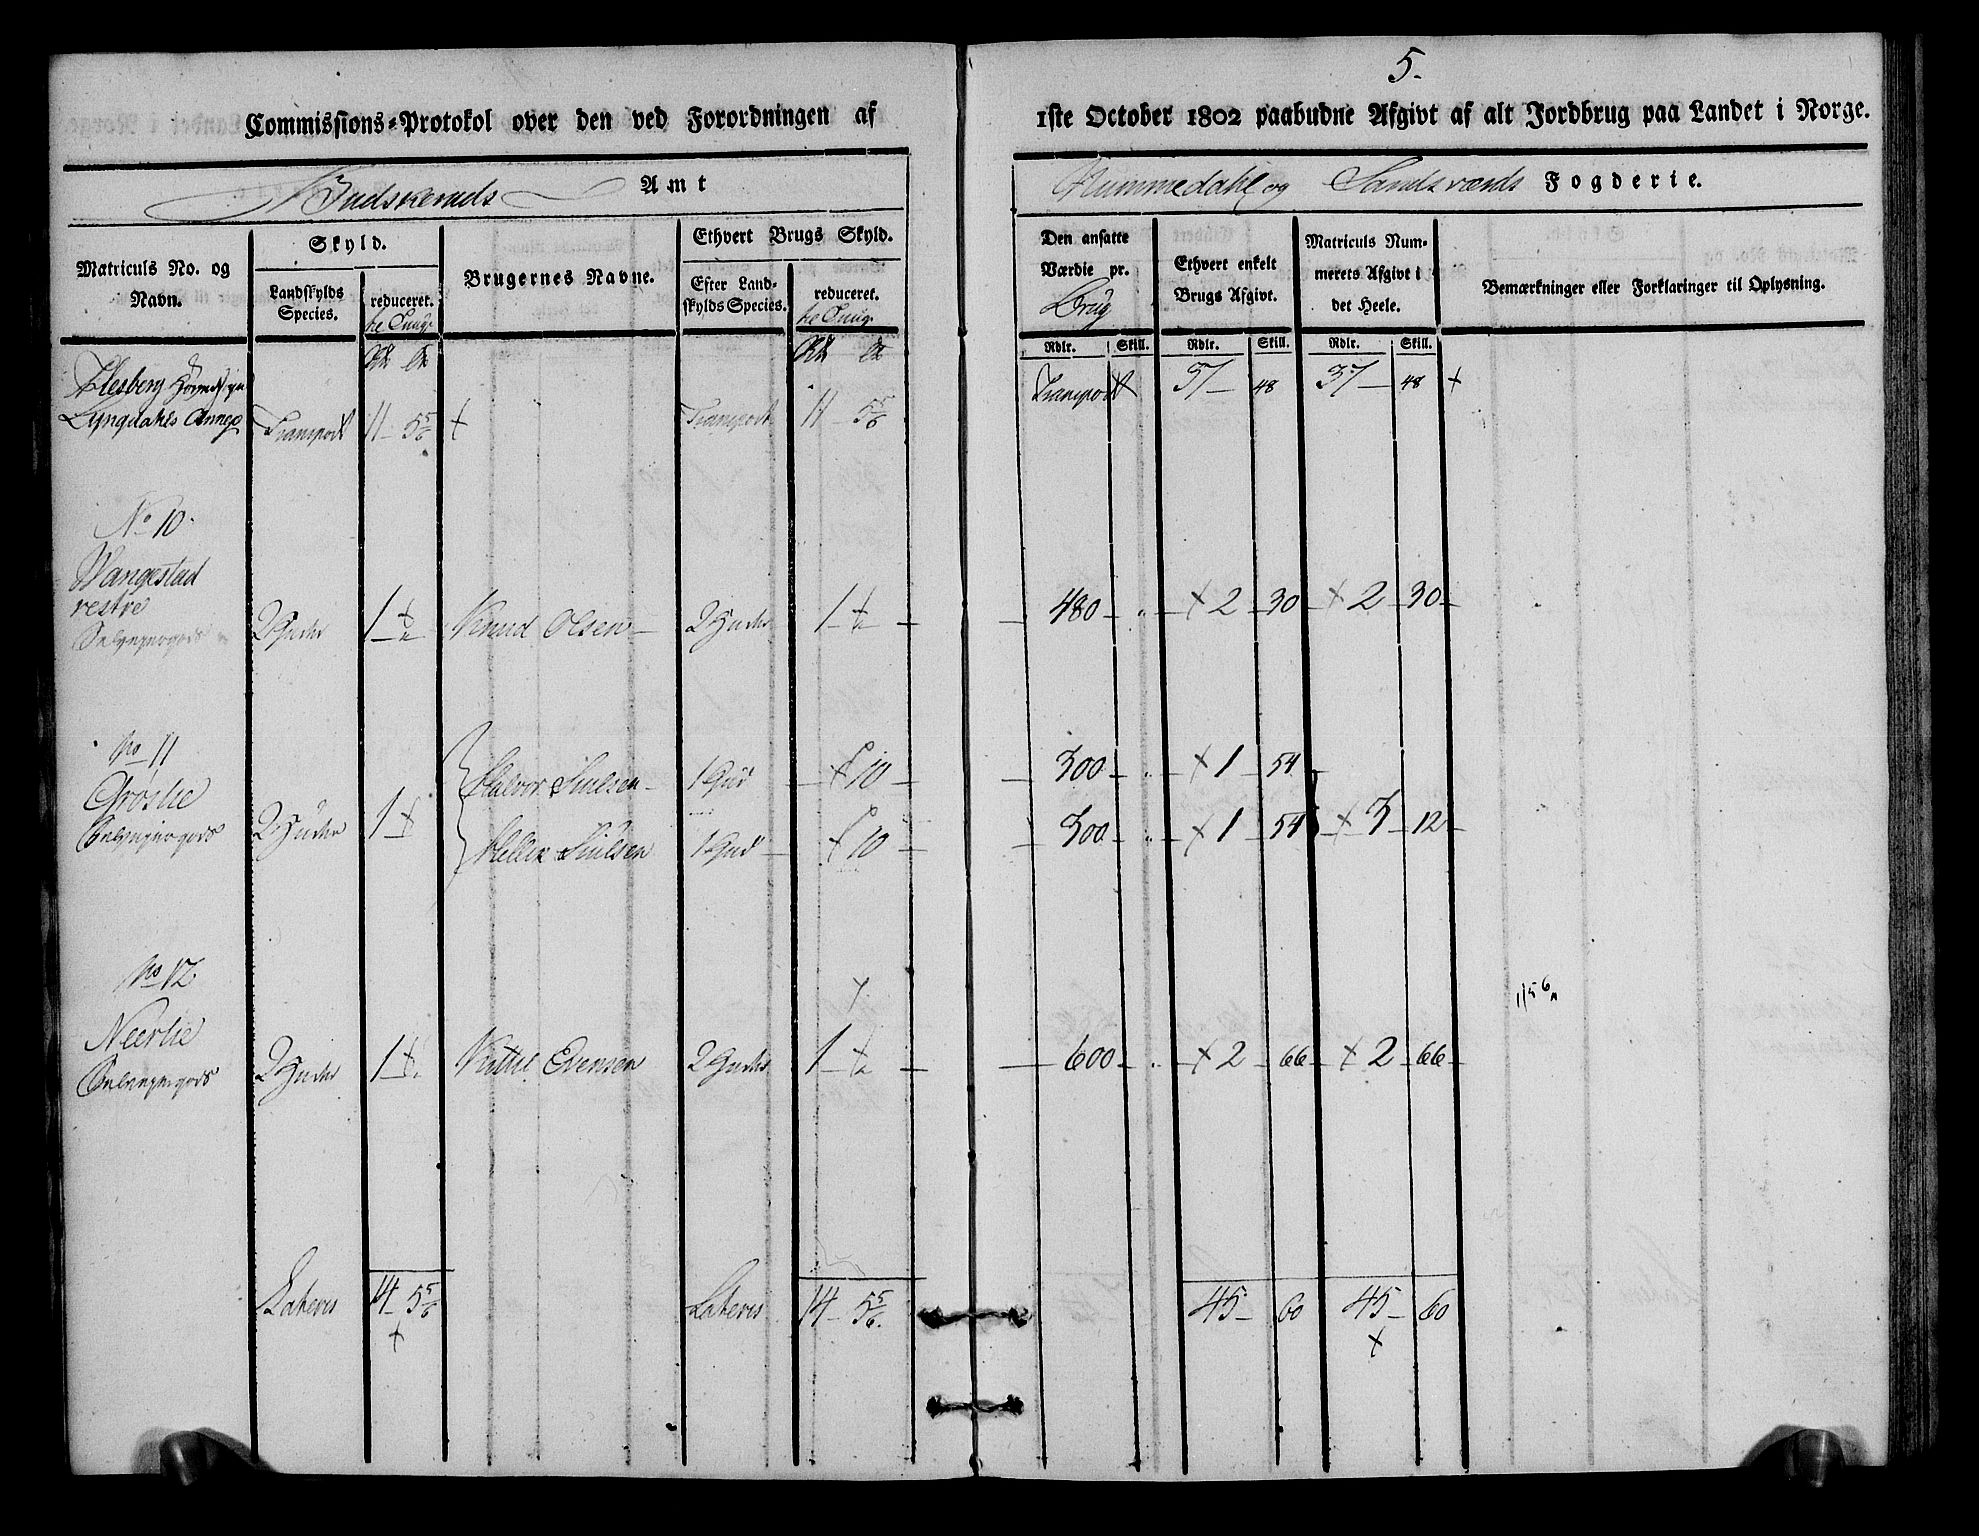 5.
Commissions-Protokol over den ved Forordningen af 1ste October 1802 paabudne Afgivt af alt Jordbrug paa Landet i Norge.
Budskeruds Amt
Nummedahl og Sandsværds Fogderie.
Matriculs No. og Navn.
Skyld.
Landskylds Species.
reduceret.
Brugernes Navne.
Ethvert Brugs Skyld.
Efter Landskylds Species.
reduceret.
Den ansatte Værdie pr. Brug
Ethvert enkelt Brugs Afgivt.
Matriculs Nummerets Afgivt i det Heele.
Bemærkninger eller Forklaringer til Oplysning.
Rdlr. Skill. Rdlr. Skill. Rdlr. Skill.
Flesberg
Lyngdahls Annex Transport 11 - 5 5/6 + Transport 11 - 5 5/6 Transport 37 - 48 37 - 48 +
No 10
Wangestad
vestre
Selveyergods 2 Huder 1 - Knud Olsen 2 Huder 1 - 480 - „ - + 2 - 30 - + 2 - 30 -
No 11
Grøslie
Selveyergods 2 Huder 1 -
Halvor 1 Hud 10 - 300 - „ - + 1 - 54 -
1 Hud 10 - 300 - „ - + 1 - 54 - + 3 - 12 -
No 12
Neerlie
Selveyergods 2 Huder 1 - Kittil Evensen 2 Huder 1 - 600 - „ - + 2 - 66 - + 2 - 66 -
Lateris 14 - 5 5/6 Lateris 14 - 5 5/6 45 - 60 45 - 60
+ +